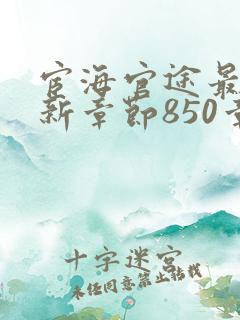 宦海官途最
新章节850章
十字迷宫
未经同意禁止转载